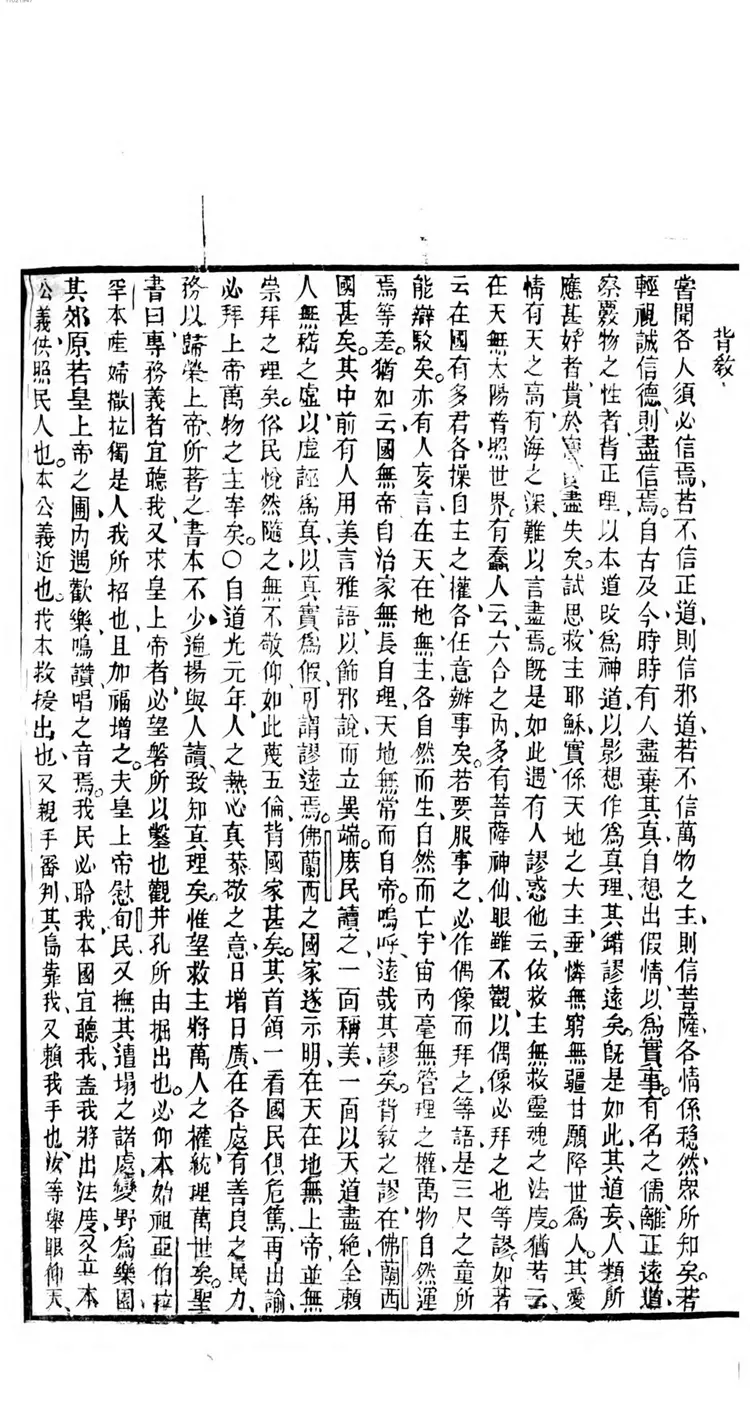 背教
嘗聞各人須必信焉若不信正道則信邪道若不信萬物之主則信菩薩各情係穩然衆所知矣若
輕視誠信德則盡信焉自古及今時時有人盡棄其真自想出假情以爲實事有名之儒離正遠道
察覈物之性者背正理以本道改爲神道以影想作爲真理其錯謬遠矣旣是如此其道妄人類所
應甚好者貴於寳盡失矣試思救主耶穌實係天地之大主垂憐無窮無疆甘願降世爲人其愛
情有天之高有海之深難以言盡焉旣是如此遇有人謬惑他云依救主無救靈魂之法度猶若云
在天無太陽普照世界有蠢人云六合之內多有菩薩神仙眼雖不觀以偶像必拜之也等謬如若
云在國有多君各操自主之權各任意辦事矣若要服事之必作偶像而拜之等語是三尺之童所
能辯駁矣亦有人妄言在天在地無主各自然而生自然而亡宇宙內毫無管理之權萬物自然運
焉等差猶如云國無帝自治家無長自理天地無常而自帝嗚呼遠哉其謬矣背教之謬在佛蘭西
國甚矣其中前有人用美言雅語以飾邪說而立異端庶民讀之一面稱美一面以天道盡絶全頼
人無嵇之虛以虛誣爲真以真實爲假可謂謬遠焉佛蘭西之國家遂示明在天在地無上帝並無
崇拜之理矣俗民悅然隨之無不敬仰如此蔑五倫背國家甚矣其首領一看國民俱危篤再出諭
必拜上帝萬物之主宰矣〇自道光元年人之熱心真恭敬之意日增日廣在各處有善良之民力
務以歸榮上帝所著之書本不少遍揚與人讀致知真理矣惟望救主將萬人之權統理萬世矣聖
書曰專務義者宜聽我又求皇上帝者必望磐所以鑿也觀井孔所由掘出也必仰本始祖亞伯拉
罕本產婦撒拉獨是人我所招也且加福增之夫皇上帝慰旬民又撫其遺塌之諸處變野爲樂園
其郊原若皇上帝之圃內遇歡樂鳴讚唱之音焉我民必聆我本國宜聽我蓋我將出法度又立本
公義供照民人也本公義近也我本救援出也又親手審判其島靠我又賴我手也汝等舉眼仰天